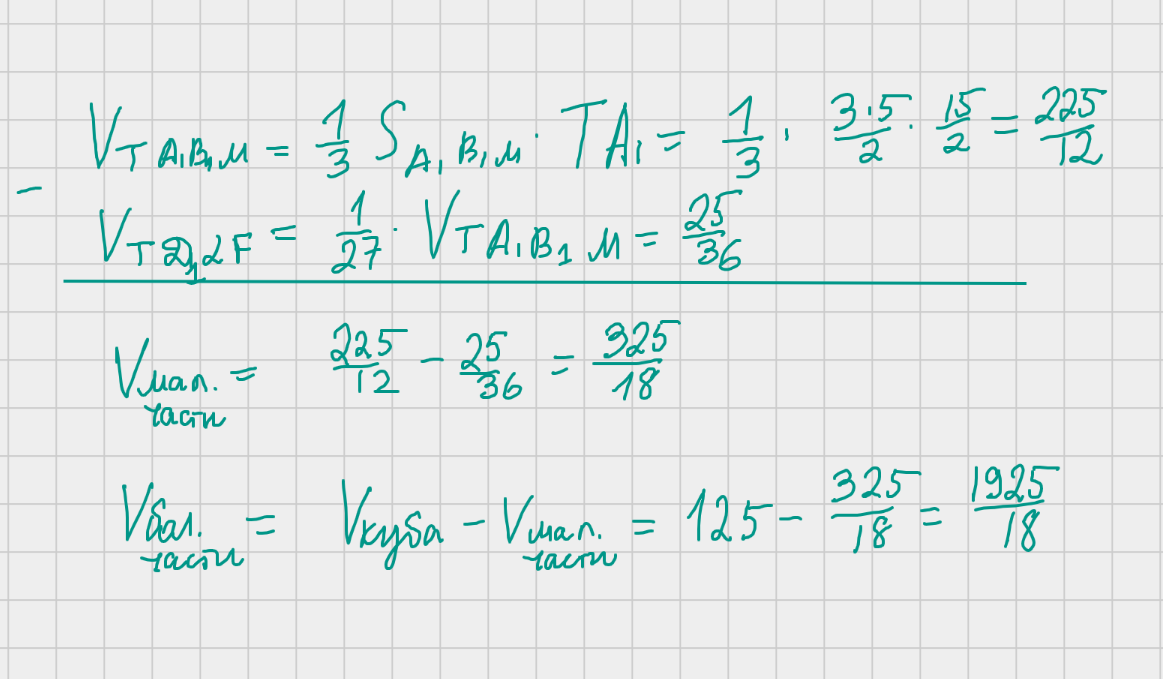 V_{TA₁B₁M} = 1/3 S_{A₁B₁M} · TA₁ = 1/3 · 3·5/2 · 15/2 = 225/12
−
V_{TD₁LF} = 1/27 · V_{TA₁B₁M} = 25/36
V_{мал. части} = 225/12 − 25/36 = 325/18
V_{бал. части} = V_{куба} − V_{мал. части} = 125 − 325/18 = 1925/18